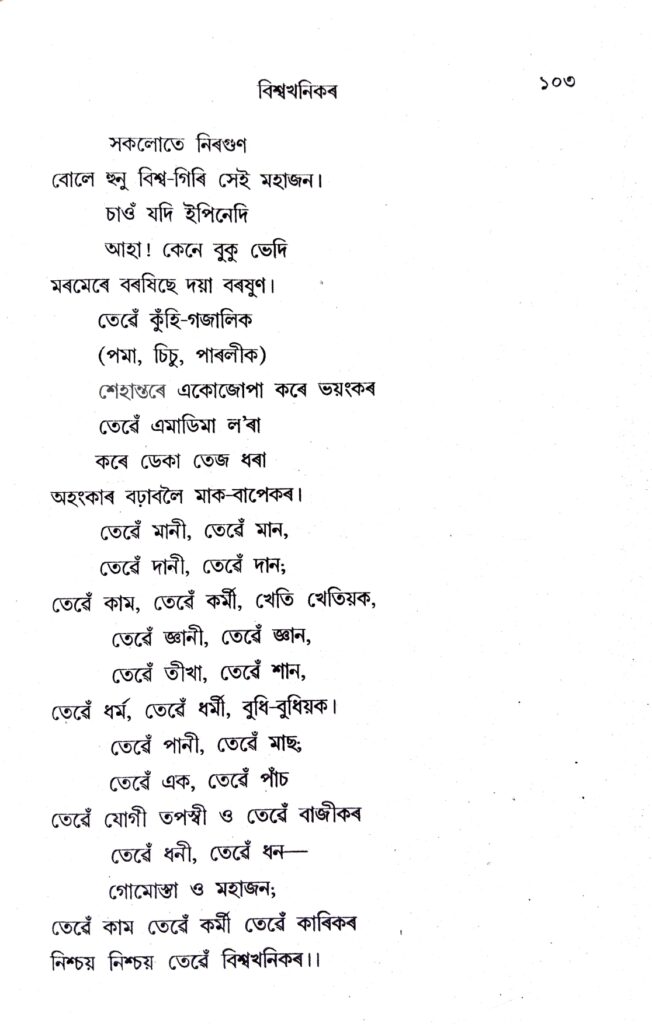 বিশ্বখনিকৰ
১০৩
সকলোতে নিৰগুণ
বোলে হুনু বিশ্ব-গিৰি সেই মহাজন।
চাওঁ যদি ইপিনেদি
আহা! কেনে বুকু ভেদি
মৰমেৰে বৰষিছে দয়া বৰষুণ।
তেৱেঁ কুঁহি-গজালিক
(পমা, চিচু, পাৰলীক)
শেহান্তৰে একোজোপা কৰে ভয়ংকৰ
তেৱেঁ এমাডিমা ল'ৰা
কৰে ডেকা তেজ ধৰা
অহংকাৰ বঢ়াবলৈ মাক-বাপেকৰ।
তেৱেঁ মানী, তেৱেঁ মান,
তেৱেঁ দানী, তেৱেঁ দান;
তেৱেঁ কাম, তেৱেঁ কৰ্মী, খেতি খেতিয়ক,
তেৱেঁ জ্ঞানী, তেৱেঁ জ্ঞান,
তেৱেঁ তীখা, তেৱেঁ শান,
তেৱেঁ ধৰ্ম, তেৱেঁ ধৰ্মী, বুধি-বুধিয়ক।
তেৱেঁ পানী, তেৱেঁ মাছ;
তেৱেঁ এক, তেৱেঁ পাঁচ
তেৱেঁ যোগী তপস্বী ও তেৱেঁ বাজীকৰ
তেৱেঁ ধনী, তেৱেঁ ধন—
গোমোস্তা ও মহাজন;
তেৱেঁ কাম তেৱেঁ কৰ্মী তেৱেঁ কাৰিকৰ
নিশ্চয় নিশ্চয় তেৱেঁ বিশ্বখনিকৰ।।